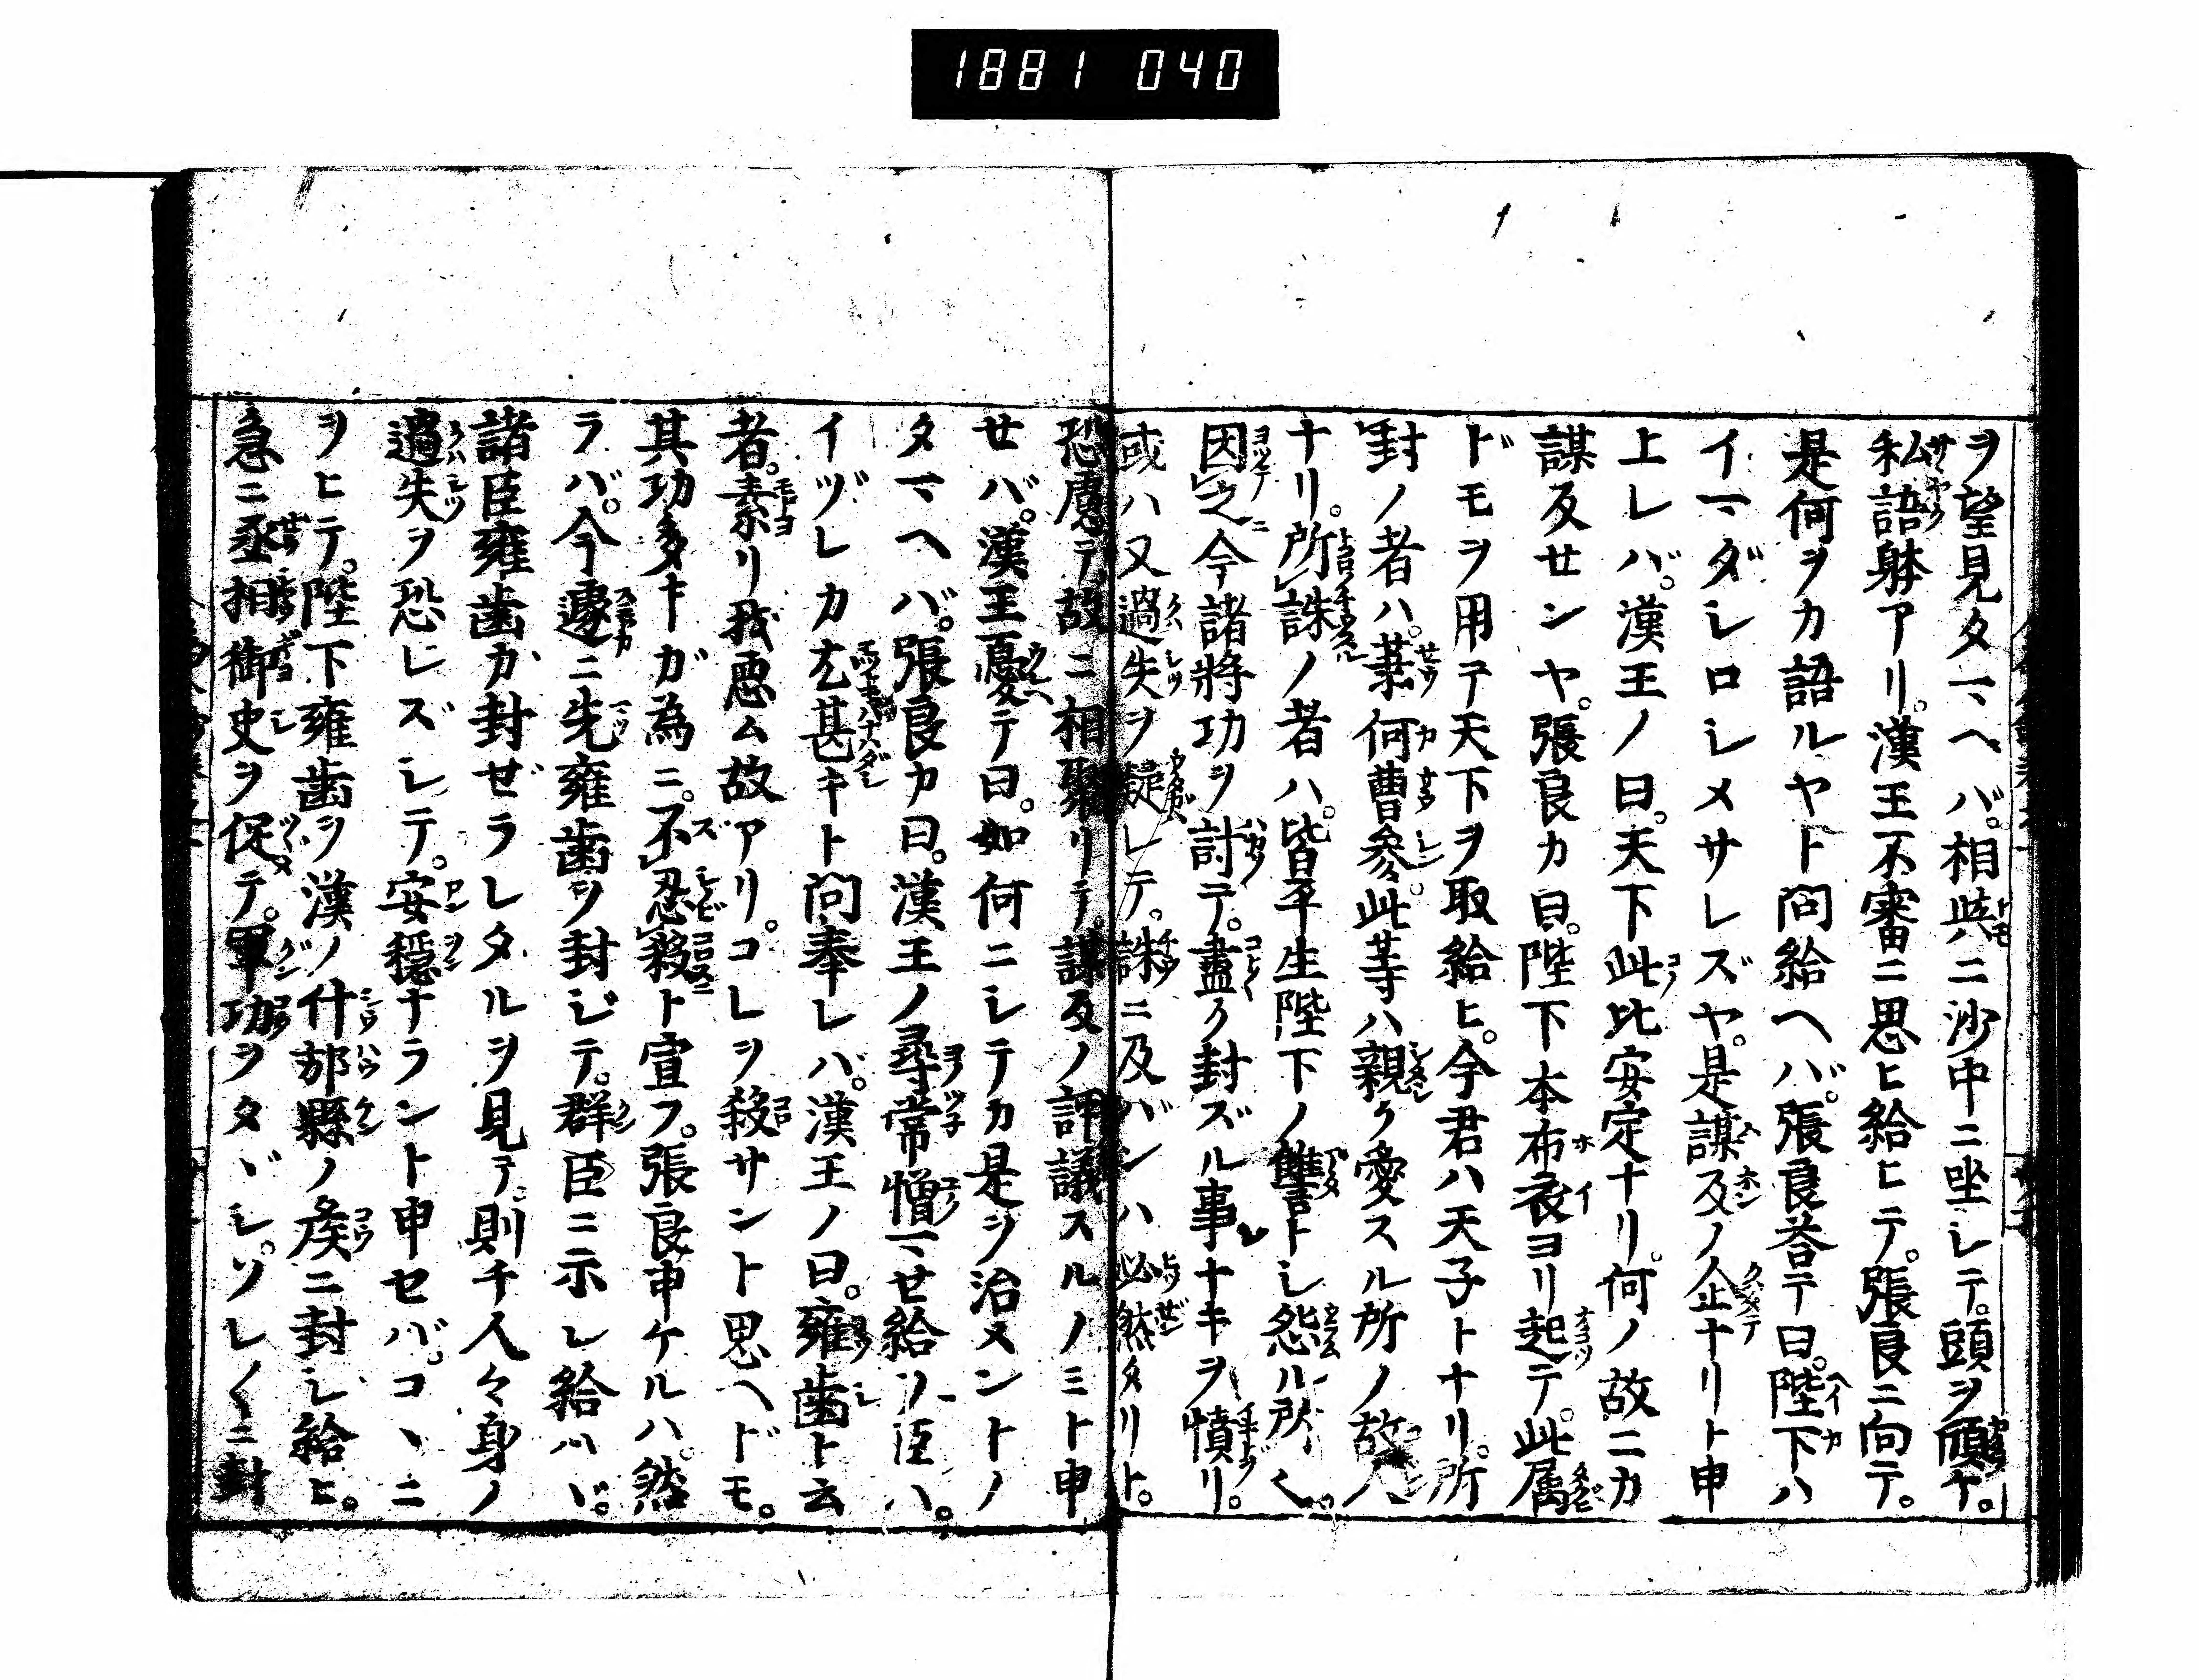 1881 040
ヲ望見タマヘバ。相與ニ沙中ニ坐シテ。頭ヲ傾ケ。
私語躰アリ。漢王不審ニ思ヒ給ヒテ。張良ニ向テ。
是何ヲカ語ルヤト問給ヘバ。張良荅テ曰。陛下ハ
イマダシロシメサレズヤ。是謀反ノ企ナリト申
上レバ。漢王ノ曰。天下此比安定ナリ。何ノ故ニカ
謀反センヤ。張良カ曰。陛下本布衣ヨリ起テ。此属
ドモヲ用ヲ天下ヲ取給ヒ。今君ハ天子トナリ。所
封ノ者ハ。蕭何曹參。此等ハ親ク愛スル所ノ故人
ナリ。所誅ノ者ハ。皆平生陛下ノ讎トシ怨ル所
因之今諸将功ヲ討テ。盡ク封ズル事ナキヲ憤リ。
或ハ又過失ヲ疑レテ。誅ニ及バンハ必然タリト。
恐慮テ。故ニ相聚リテ。謀反ノ評議スルノミト申
セバ。漢王憂テ曰。如何ニシテカ是ヲ治メントノ
タマヘバ。張良カ曰。漢王ノ尋常憎マセ給ソ臣ハ。
イヅレカ尤甚キト問奉レバ。漢王ノ曰。雍歯ト云
者。素リ我悪ム故アリ。コレヲ殺サント思ヘドモ。
其功多キガ為ニ。不忍殺ト宣フ。張良申ケルハ。然
ラバ。今遽ニ先雍歯ヲ封ジテ。群臣ニ示シ給ハヾ。
諸臣雍歯ガ封ゼラレタルヲ見テ。則チ人々身ノ
過失ヲ恐レズシテ。安穏ナラント申セバ。コヽニ
ヲヒテ。陛下雍歯ヲ漢ノ什邡縣ノ矦ニ封シ給ヒ。
急ニ丞相御史ヲ促テ。軍功ヲタヾシ。ソレ〱ニ封